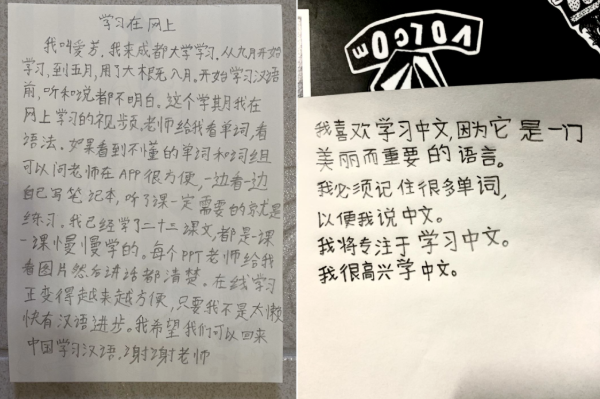 学习在网上
我叫爱芳。我来成都大学学习。从九月开始
学习,到五月,用了大概 八月。开始学习汉语
前,听和说都不明白。这个学期我在
网上学习的视频。老师给我看单词,看
语法。如果看到不懂的单词和词组
可以问老师在APP很方便,一边看一边
自己写笔记本,听了课一定需要的 就是
练习。我已经学了二十二课文,都是一课
一课慢慢学的。每个PPT老师给我
看图片然后讲话都清楚。在线学习
正变得越来越方便,只要我不是太懒
快有汉语进步。我希望我们可以回来
中国学习汉语。谢谢老师
VOLCOM
我喜欢学习中文,因为它 是一门
美丽而重要的语言。
我必须记住很多单词,
以便我说中文。
我将专注于学习中文。
我很高兴学中文。